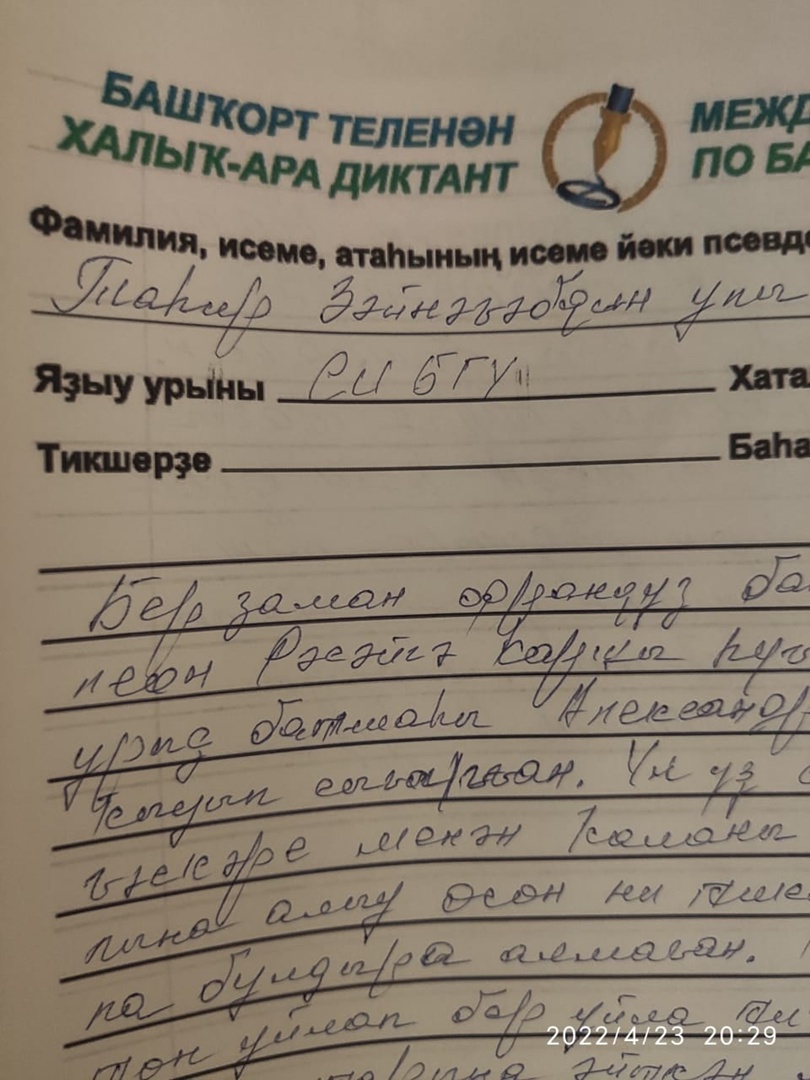 БАШҠОРТ ТЕЛЕНӘН
ХАЛЫҠ-АРА ДИКТАНТ
МЕЖД
ПО БА
Фамилия, исеме, атаһының исеме йәки псевдо
Таһир Зәйнәғәбдин улы
Яҙыу урыны СИ БГУ
Хата
Тикшерҙе
Баһа
Бер заман француз ба
леон Рәсәйгә ҡаршы һуғ
урыҫ батшаһы Александр
ҡыуып сығарған. Ул үҙ
ғәскәре менән ҡаланы
лына алыу өсөн ни тик
ла булдыра алмаған.
тон уйлап бер уйла
әйткән
2022/4/23 20:29